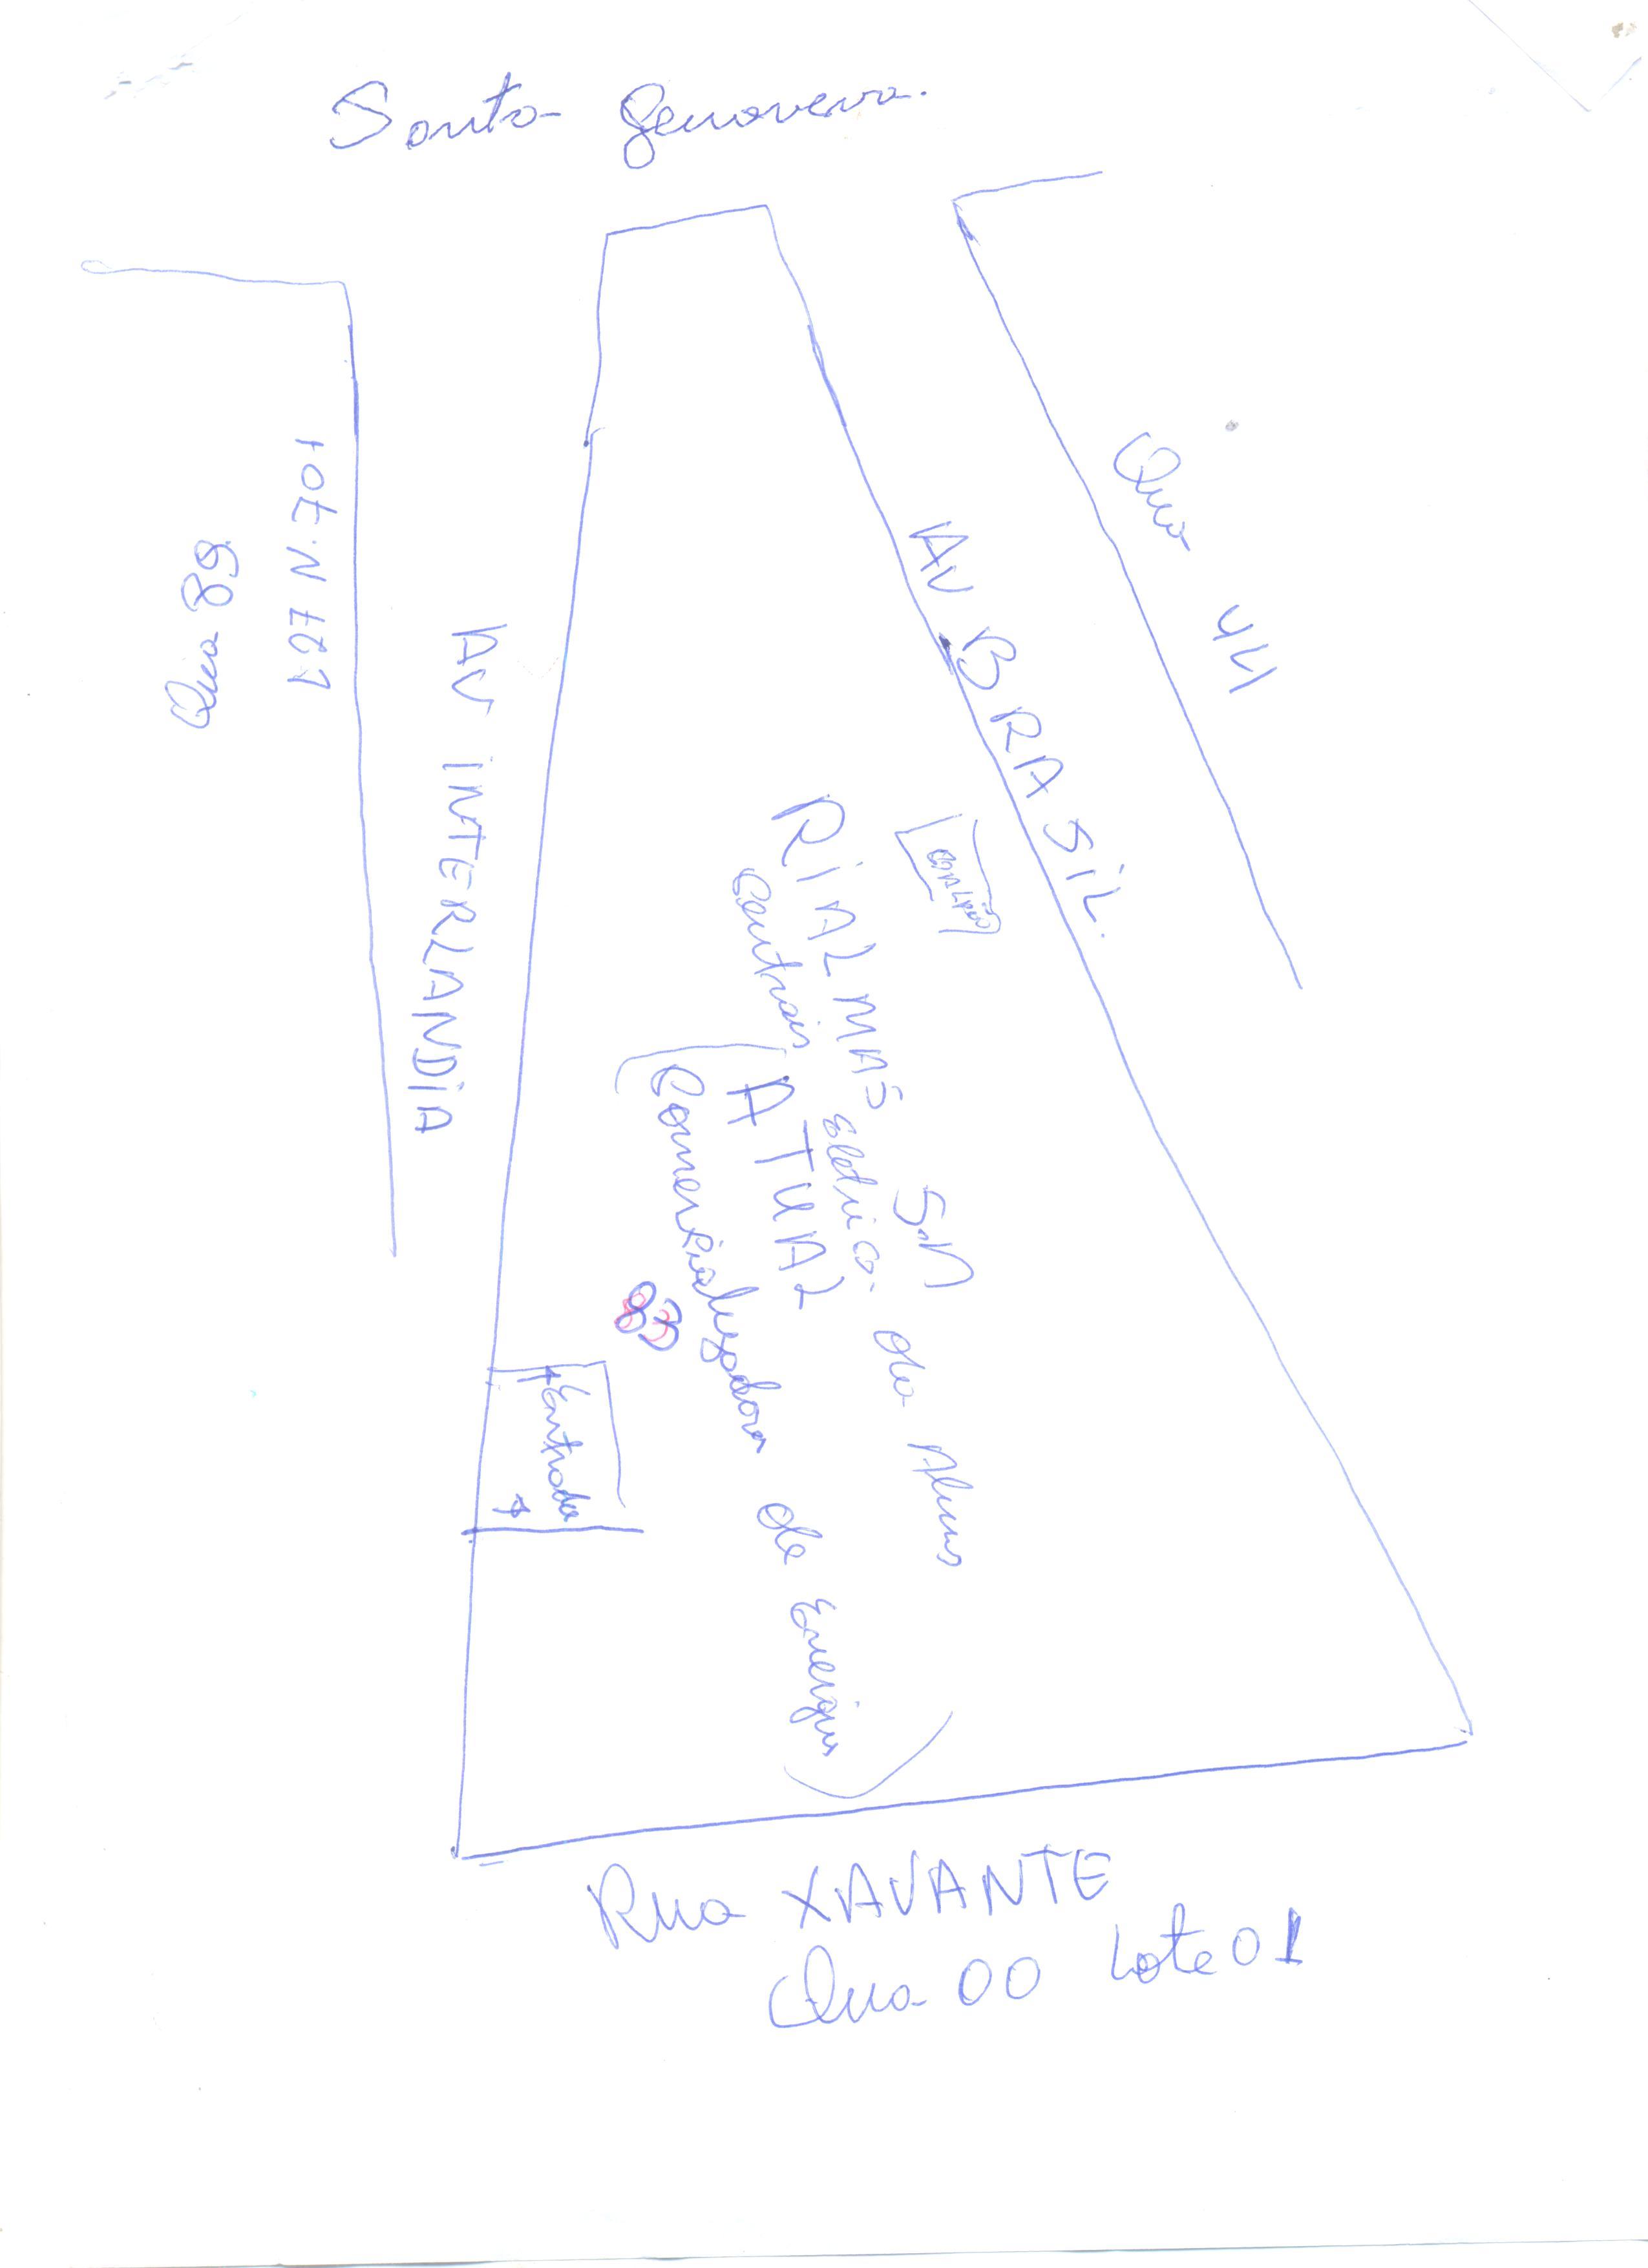 Santa Genoveva.
Qua 89
AV INTERLANDIA
AV BRASIL.
Qua 44
RIALMA S
Centrais Eletrica da Alma
SN
(ATUAL
Comercializadora de Energia)
83
Entrada
Rua XAVANTE
Qua 00 Lote 01